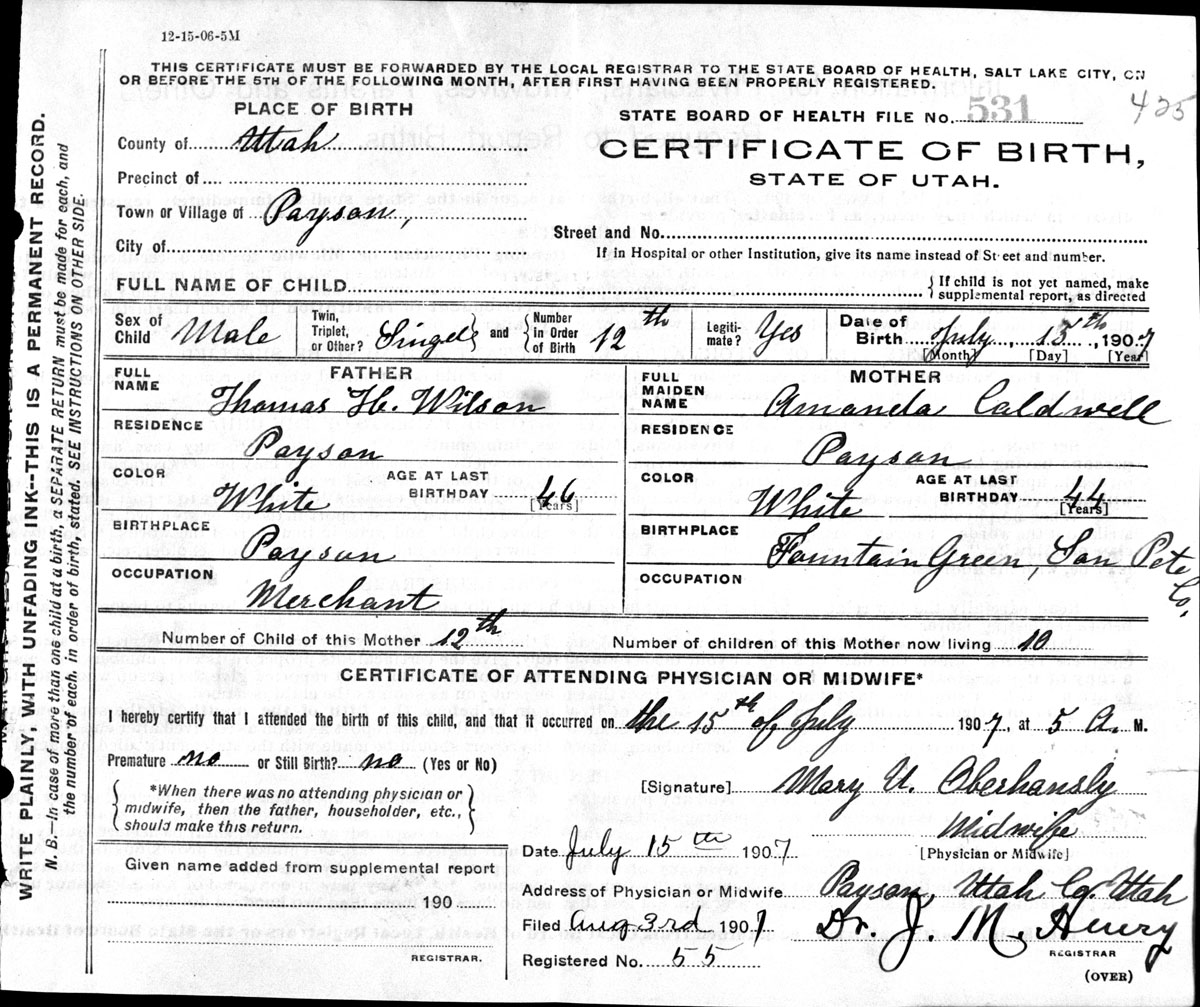 12-15-06-5M
THIS CERTIFICATE MUST BE FORWARDED BY THE LOCAL REGISTRAR TO THE STATE BOARD OF HEALTH, SALT LAKE CITY, ON
OR BEFORE THE 5TH OF THE FOLLOWING MONTH, AFTER FIRST HAVING BEEN PROPERLY REGISTERED.
PLACE OF BIRTH
STATE BOARD OF HEALTH FILE No. 531
425
County of Utah
CERTIFICATE OF BIRTH,
STATE OF UTAH.
Precinct of
Town or Village of Payson,
Street and No.
City of
If in Hospital or other Institution, give its name instead of Street and number.
FULL NAME OF CHILD
If child is not yet named, make
supplemental report, as directed
Sex of Child Male
Twin, Triplet, or Other? Singel and Number in Order of Birth 12th
Legiti-mate? Yes
Date of Birth July, 15th, 1907
[Month] [Day] [Year]
FATHER
FULL NAME Thomas H. Wilson
RESIDENCE Payson
COLOR White
AGE AT LAST BIRTHDAY 46
[Years]
BIRTHPLACE Payson
OCCUPATION Merchant
MOTHER
FULL MAIDEN NAME Amanda Caldwell
RESIDENCE Payson
COLOR White
AGE AT LAST BIRTHDAY 44
[Years]
BIRTHPLACE Fountain Green, San Pete Co.
OCCUPATION
Number of Child of this Mother 12th
Number of children of this Mother now living 10
CERTIFICATE OF ATTENDING PHYSICIAN OR MIDWIFE*
I hereby certify that I attended the birth of this child, and that it occurred on the 15th of July 1907, at 5 A. M.
Premature no or Still Birth? no (Yes or No)
*When there was no attending physician or
midwife, then the father, householder, etc.,
should make this return.
[Signature] Mary U. Oberhansly
Midwife
[Physician or Midwife]
Given name added from supplemental report
190
REGISTRAR.
Date July 15th 1907
Address of Physician or Midwife Payson, Utah Co. Utah
Filed Aug 3rd 1907 Dr. J. M. Henry
REGISTRAR
Registered No. 55
(OVER)
WRITE PLAINLY, WITH UNFADING INK--THIS IS A PERMANENT RECORD.
N. B.--In case of more than one child at a birth, a SEPARATE RETURN must be made for each, and
the number of each, in order of birth, stated. SEE INSTRUCTIONS ON OTHER SIDE.